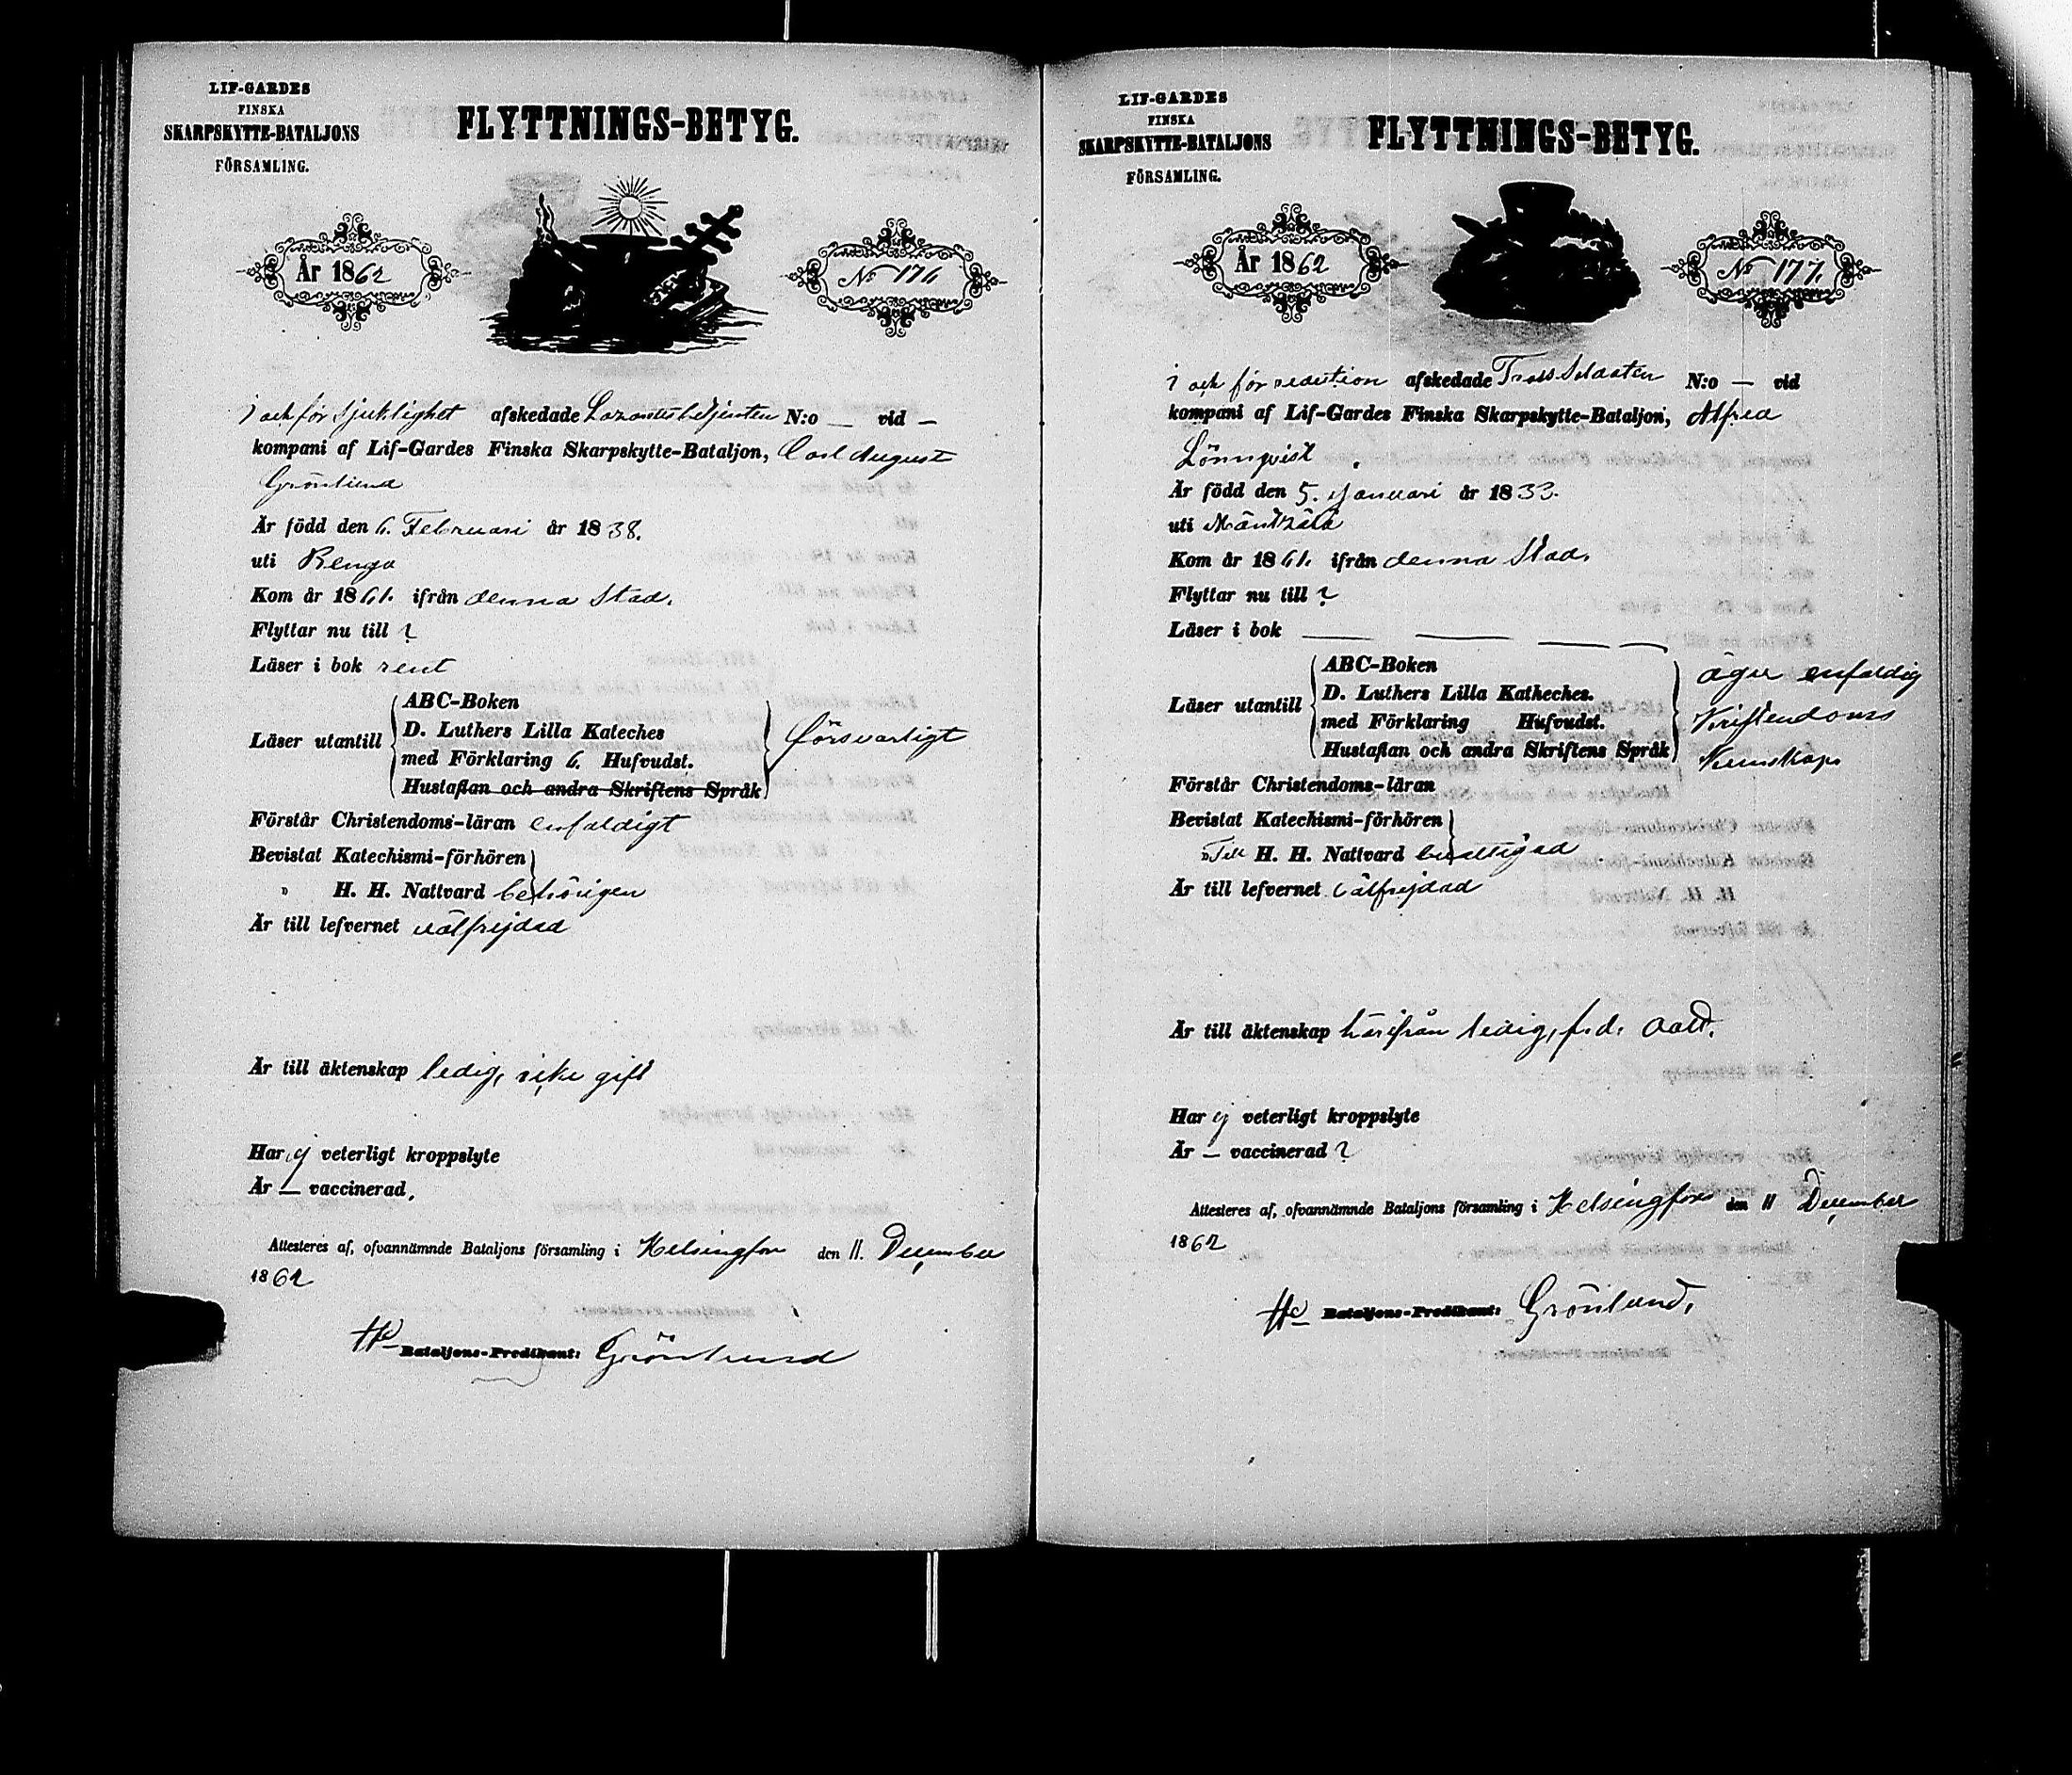 LIF-GARDES
FINSKA
SKARPSKYTTE-BATALJONS
FÖRSAMLING.
FLYTTNINGS-BETYG.
År 1862
No 176
i och för sjuklighet afskedade Lazarettsbetjenten N:o — vid —
kompani af Lif-Gardes Finska Skarpskytte-Bataljon, Carl August
Grönlund
Är född den 6. Februari år 1838.
uti Rengo
Kom år 1861. ifrån denna Stad.
Flyttar nu till ?
Läser i bok rent
Läser utantill
ABC-Boken
D. Luthers Lilla Kateches
med Förklaring 6. Hufvudst.
Hustaflan och andra Skriftens Språk
försvarligt
Förstår Christendoms-läran enfaldigt
Bevistat Katechismi-förhören
" H. H. Nattvard behörigen
Är till lefvernet välfrejdad
Är till äktenskap ledig, icke gift
Har ej veterligt kroppslyte
Är — vaccinerad.
Attesteres af, ofvannämnde Bataljons församling i Helsingfors den 11. December
1862
Bataljons-Predikant: Grönlund
LIF-GARDES
FINSKA
SKARPSKYTTE-BATALJONS
FÖRSAMLING.
FLYTTNINGS-BETYG.
År 1862
No 177.
i och för reduction afskedade Tross Soldaten N:o — vid
kompani af Lif-Gardes Finska Skarpskytte-Bataljon, Alfred
Lönnqvist.
Är född den 5. Januari år 1833.
uti Mäntzälä
Kom år 1861. ifrån denna Stad.
Flyttar nu till ?
Läser i bok — — — —
Läser utantill
ABC-Boken
D. Luthers Lilla Katheches.
med Förklaring Hufvudst.
Hustaflan och andra Skriftens Språk
äger enfaldig
Kristendoms
Kunskap.
Förstår Christendoms-läran
Bevistat Katechismi-förhören
" Till H. H. Nattvard berättigad
Är till lefvernet välfrejdad
Är till äktenskap härifrån ledig, f.d.
Har ej veterligt kroppslyte
Är — vaccinerad ?
Attesteres af, ofvannämnde Bataljons församling i Helsingfors den 11 December
1862
Bataljons-Predikant: Grönlund.